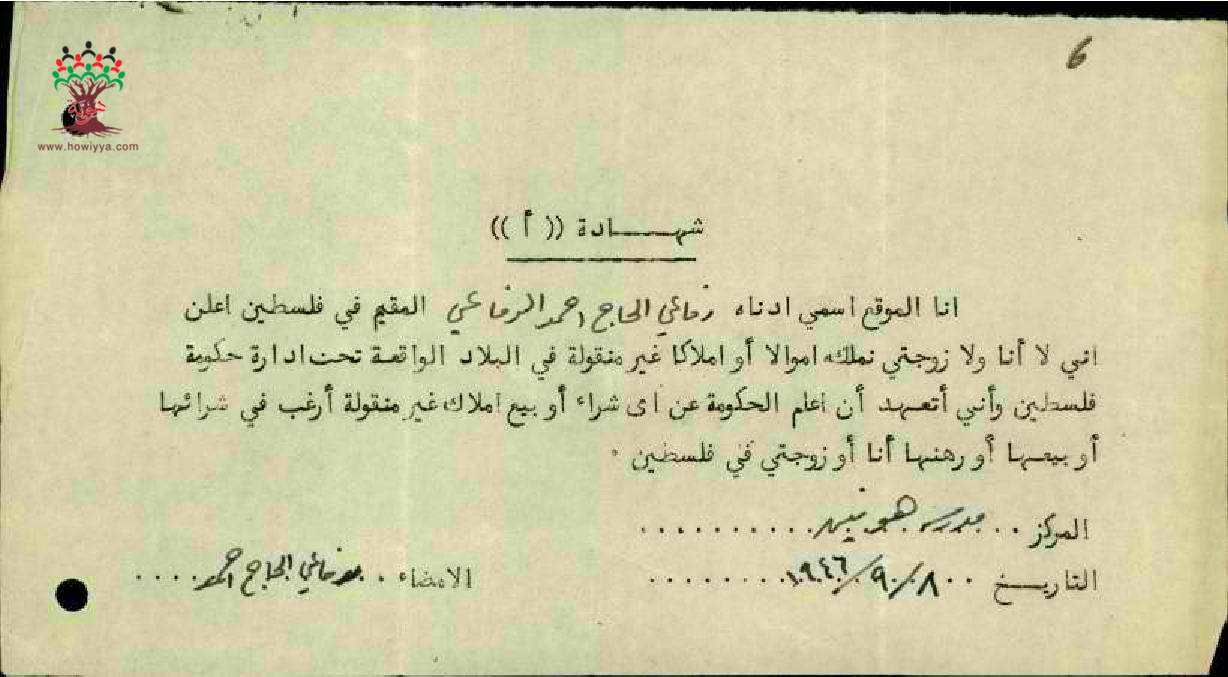 6
هوية
www.howiyya.com
شهـــــادة ((أ))
انا الموقع اسمي ادناه رفاعي الحاج احمد الرفاعي المقيم في فلسطين اعلن
اني لا أنا ولا زوجتي نملك اموالا أو املاكا غير منقولة في البلاد الواقعة تحت ادارة حكومة
فلسطين وأني أتعهد أن اعلم الحكومة عن اى شراء أو بيع املاك غير منقولة أرغب في شرائها
أو بيعها أو رهنها أنا أو زوجتي في فلسطين .
المركز .. مدرسة هونين ..........
التاريــخ .. ٨/٩/١٩٤٦ ........ الامضاء .. رفاعي الحاج احمد ....